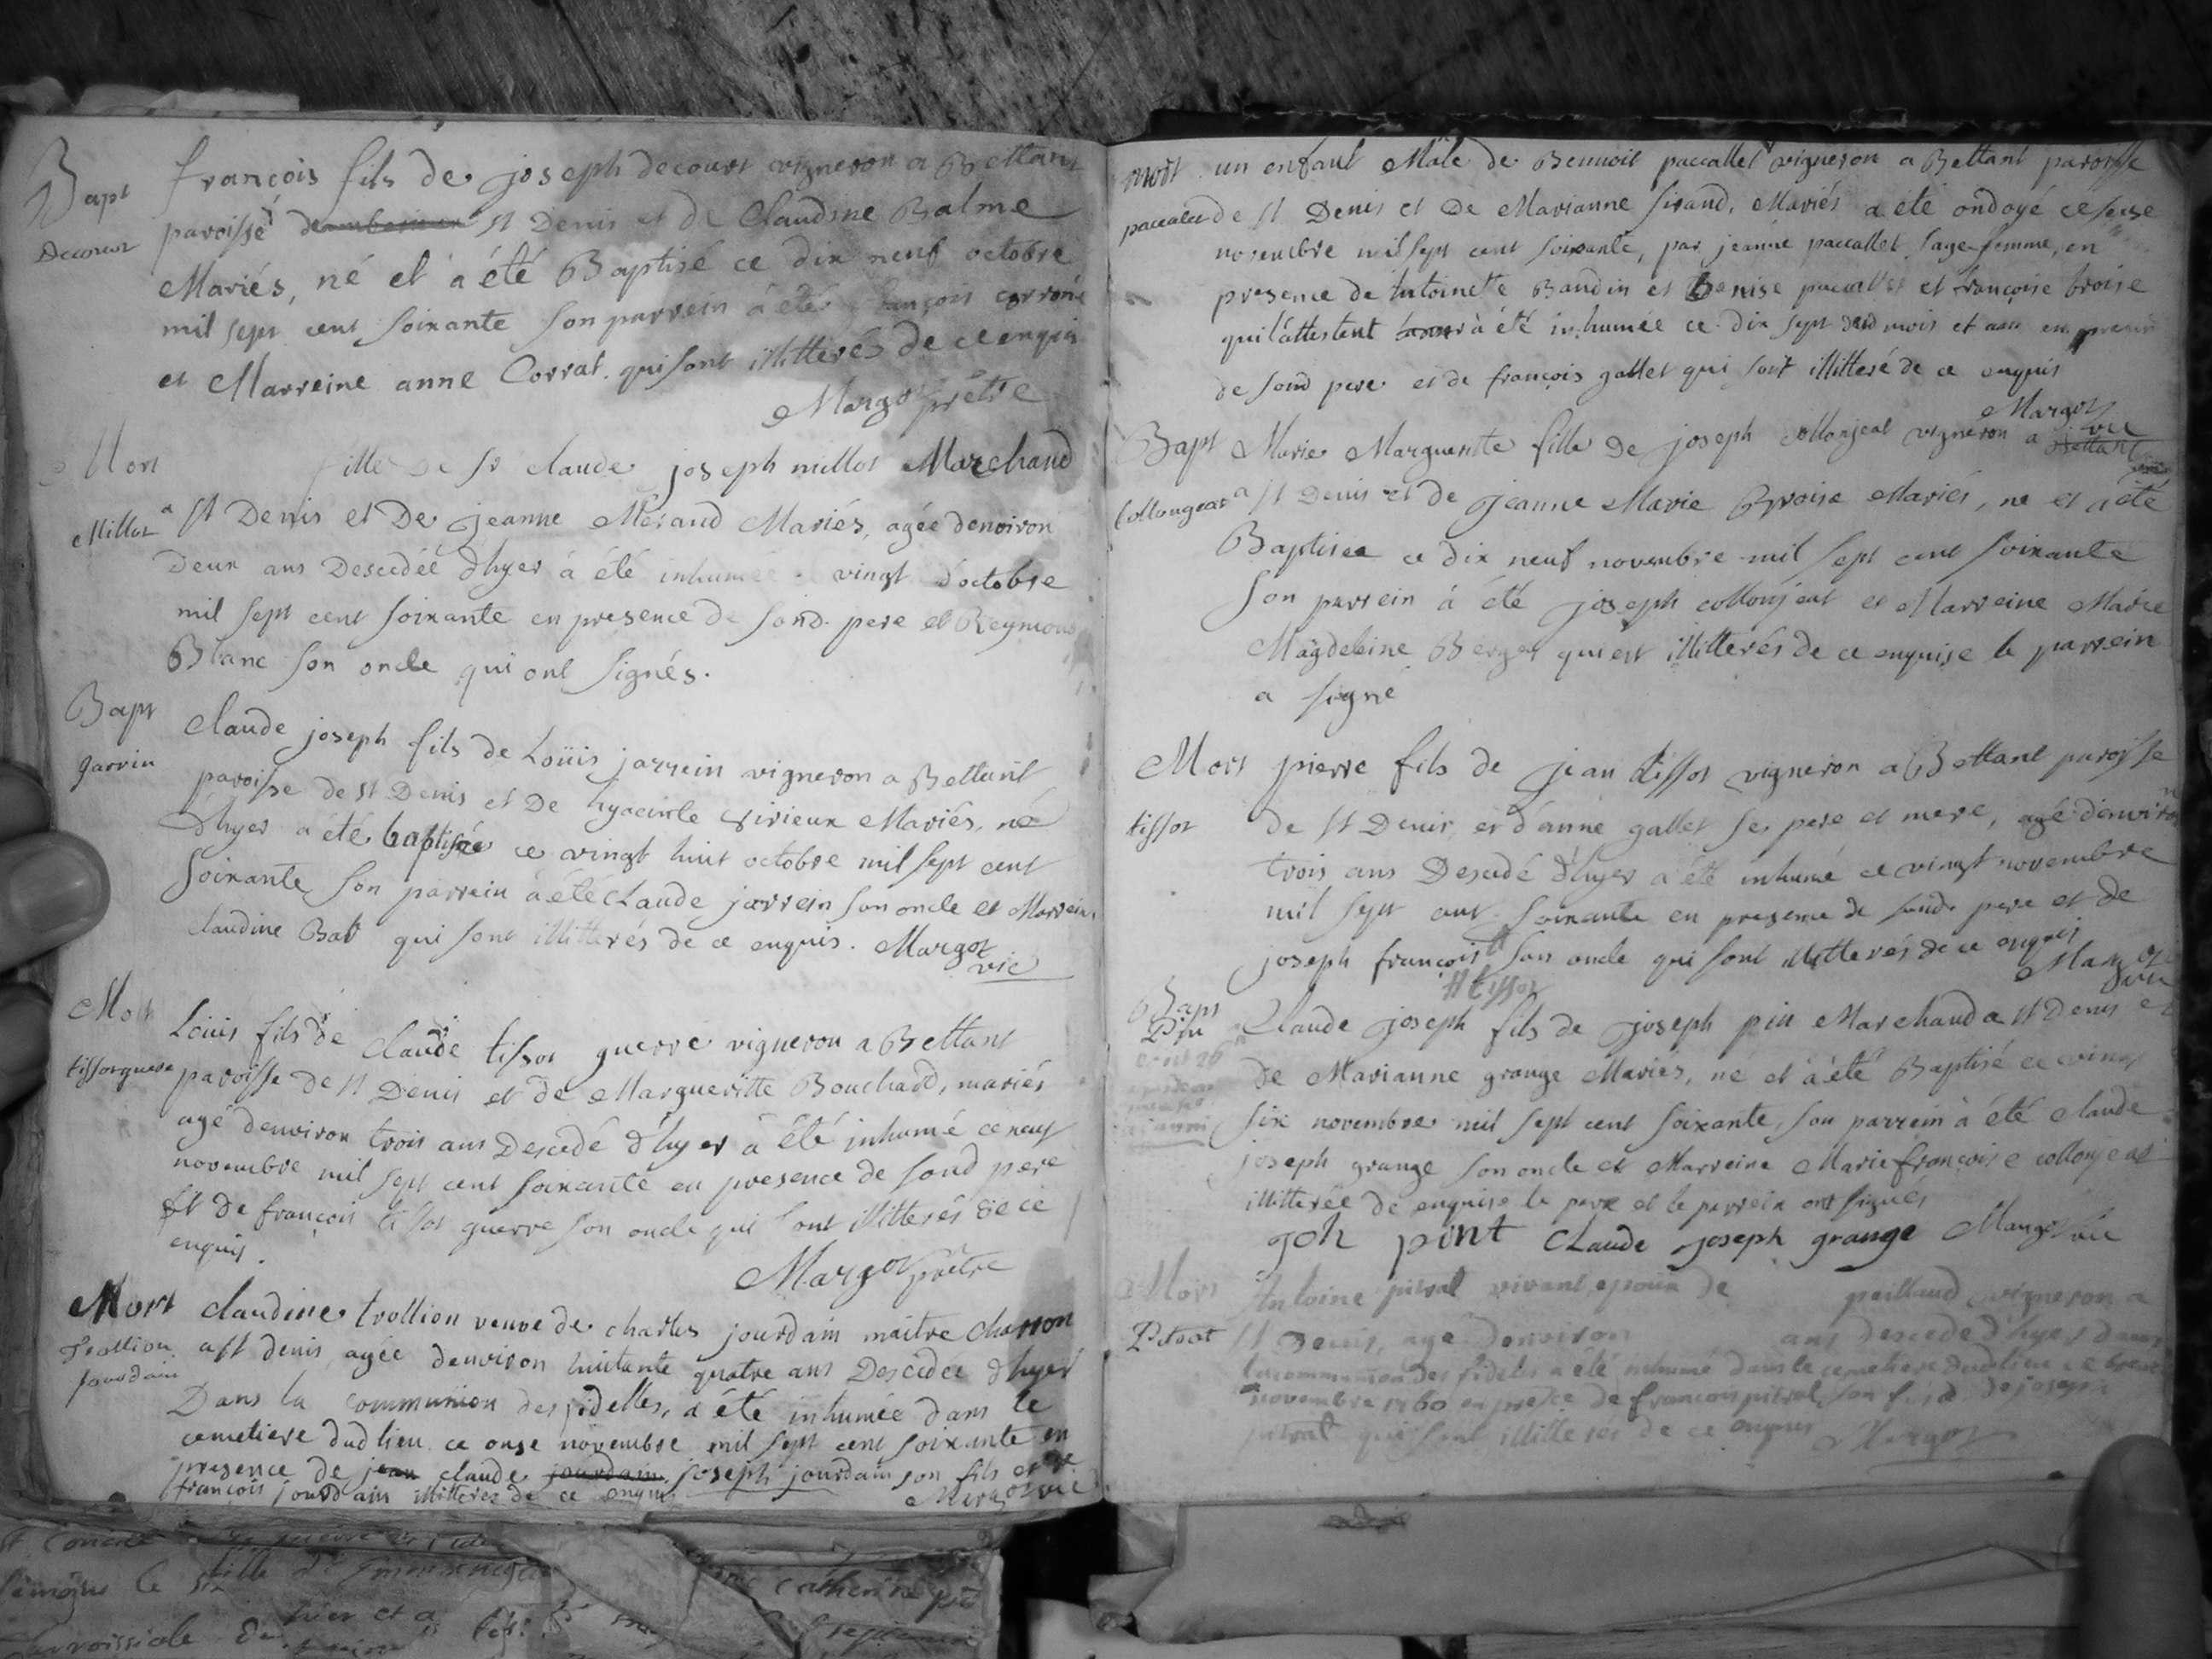 Bapt
Decourt
françois fils de joseph decourt vigneron a Bettant
paroisse de St Denis et de Claudine Balme
Mariés, né et a été Baptisé ce dix neuf octobre
mil sept cent soixante son parrein a été françois
et Marreine anne Corrat qui sont illitterés de ce enquis
Margot prêtre
Mort
Millot
fille de Sr claude joseph millot Marchand
a St Denis et De jeanne Meraud Mariés, agée denviron
Deux ans Descedéé d'hyer à été inhumée vingt d'octobre
mil sept cent soixante en presence de sond. pere et Reymond
Blanc son oncle qui ont signés.
Bapt
jarrin
Claude joseph fils de Loüis jarrein vigneron a Bettant
paroisse de St Denis et De hyacinte Sirieux Mariés, né
d'hyer a été baptisée ce vingt huit octobre mil sept cent
soixante son parrein a été Claude jarrein son oncle et Marreine
claudine Bat qui sont illitterés de ce enquis. Margot
vic
Mort
tissotguere
Loüis fils de claude tissot guerre vigneron a Bettant
paroisse de St Denis et de Margueritte Bouchard, mariés
agé denviron trois ans Descedé d'hyer à été inhumé ce neuf
novembre mil sept cent soixante en presence de sond pere
Et de françois tissot guerre son oncle qui sont illitterés de ce
enquis.
Margot prêtre
Mort
trollion
jourdain
claudine trollion veuve de charles jourdain maitre charron
a St denis agée denviron huitante quatre ans Descedée d'hyer
Dans la communion des fidelles, a été inhumée dans le
cemetiere dud lieu ce onse novembre mil sept cent soixante en
presence de jean claude jourdain joseph jourdain son fils et de
françois jourdain illitterés de ce enquis
Margot vic
mort
paccalet
un enfant Mâle de Bennoit paccallet vigneron a Bettant paroisse
de St Denis et De Marianne sirand, Mariés a été ondoyé ce seise
novembre mil sept cent soixante, par jeanne paccallet sage-femme, en
presence de Antoinette Baudin et Denise paccallet et françoise broise
qui l'attestent à été inhumée ce dix sept dud mois et an en
de sond pere et de françois gallet qui sont illitteré de ce enquis
Margot
vic
Bapt
Collongeat
Marie Margueritte fille de joseph collonjeat vigneron a Bettant
a St Denis et de jeanne Marie Broise Mariés, ne et a été
Baptisee ce dix neuf novembre mil sept cent soixante
son parrein à été joseph collonjeat et Marreine Marie
Magdeleine Berger qui est illitterés de ce enquise le parrein
a signé
Mort
tissot
pierre fils de jean tissot vigneron a Bettant paroisse
de St Denis, et d'anne gallet ses pere et mere, agé d'environ
trois ans Descedé d'hyer a été inhumé ce vingt novembre
mil sept cent soixante en presence de sond. pere et de
joseph françois # son oncle qui sont illitterés de ce enquis
# tissot
Margot
vic
Bapt
Pin
Claude joseph fils de joseph pin Marchand a St Denis et
de Marianne grange Mariés, né et a été Baptisé ce vingt
six novembre mil sept cent soixante, son parrein à été claude
joseph grange son oncle et Marreine Marie françoise collonjeat
illitterée de enquise le pere et le parrein ont signés
joh pint Claude joseph grange Margot vic
Mort
Pitrat
Antoine pitrat vivant epoux de paillaud vigneron a
St Denis, agé denviron ans descedé d'hyer dans
la communion des fidelles a été inhumé dans le cemetiere dud lieu ce
novembre 1760 en presce de francois pitrat son fs et de joseph
pitrat qui sont illitterés de ce enquis Margot